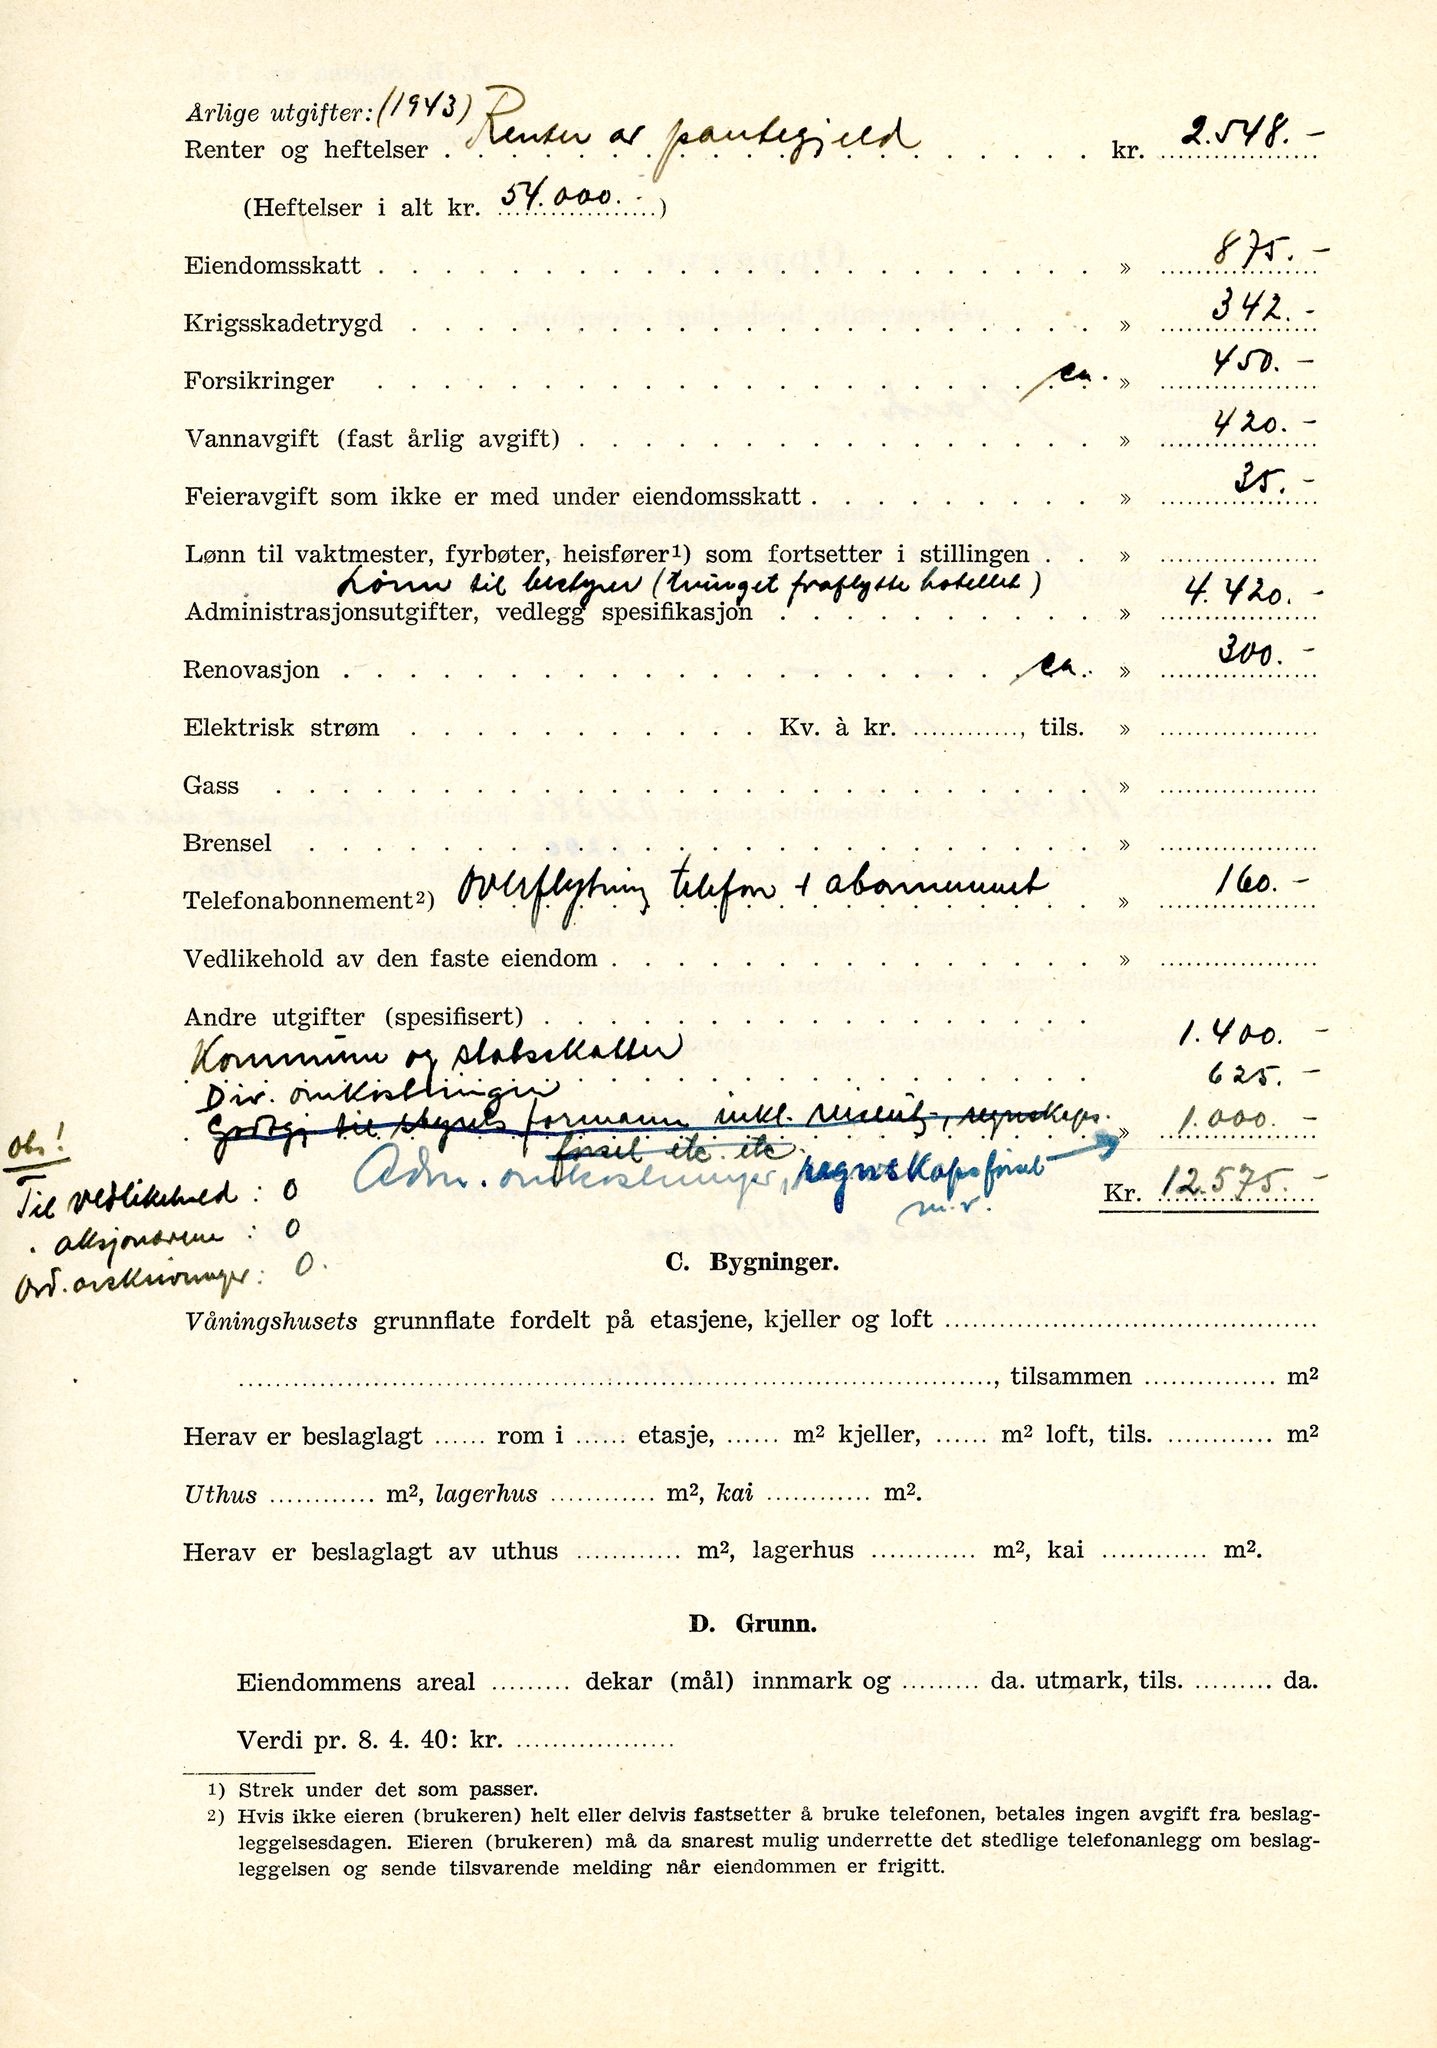 Årlige utgifter: (1943)
Renter og heftelser . Renter av pantegjeld . . . . kr. 2.548.-
(Heftelser i alt kr. 54.000.-)
Eiendomsskatt . . . . . . . . » 875.-
Krigsskadetrygd . . . . . . . . » 342.-
Forsikringer . . . . . . . . ca. » 450.-
Vannavgift (fast årlig avgift) . . . . . . . . » 420.-
Feieravgift som ikke er med under eiendomsskatt . . . . . . . . » 35.-
Lønn til vaktmester, fyrbøter, heisfører1) som fortsetter i stillingen . . » ........
Lønn til bestyrer (tvunget fraflytte hotellet)
Administrasjonsutgifter, vedlegg spesifikasjon . . . . . . . . » 4.420.-
Renovasjon . . . . . . . . ca. » 300.-
Elektrisk strøm . . . . . . . . Kv. à kr. ............, tils. » ........
Gass . . . . . . . . » ........
Brensel . . . . . . . . » ........
Telefonabonnement2) Overflytning telefon + abonnement » 160.-
Vedlikehold av den faste eiendom . . . . . . . . » ........
Andre utgifter (spesifisert) . . . . . . . .
Kommune og statsskatter 1.400.-
Div. omkostninger 625.-
Godtgj. til styrets formann inkl. reiseutg., regnskaps- » 1.000.-
førsel etc. etc.
Adm. omkostninger, regnskapsførsel
m.v.
Kr. 12.575.-
Obs!
Til vedlikehold : 0
. aksjonærene : 0
Ord. avskrivninger : 0.
C. Bygninger.
Våningshusets grunnflate fordelt på etasjene, kjeller og loft ........
........, tilsammen ............ m2
Herav er beslaglagt ...... rom i ...... etasje, ...... m2 kjeller, ...... m2 loft, tils. ............ m2
Uthus ............ m2, lagerhus ............ m2, kai ............ m2.
Herav er beslaglagt av uthus ............ m2, lagerhus ............ m2, kai ............ m2.
D. Grunn.
Eiendommens areal ......... dekar (mål) innmark og ......... da. utmark, tils. ......... da.
Verdi pr. 8. 4. 40: kr. ..................
1) Strek under det som passer.
2) Hvis ikke eieren (brukeren) helt eller delvis fastsetter å bruke telefonen, betales ingen avgift fra beslag-
leggelsesdagen. Eieren (brukeren) må da snarest mulig underrette det stedlige telefonanlegg om beslag-
leggelsen og sende tilsvarende melding når eiendommen er frigitt.